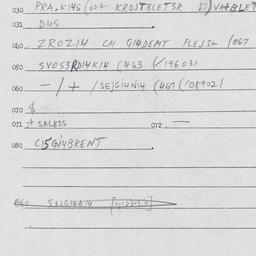 030 PRA.KI4S (022 KROJTBLET3R VA+BLET
031 D4S
040 ZROZI4 CM GI4DEMT FLEJS+ (067
050 SVOS3RDI4KI4 (463 (196031
060 - / + / SEJGI4NI4 (467 (108902)
070 $
071 + SAL83S 072 -
080 CI5GI4BRENT
060 SEJGI4NI4